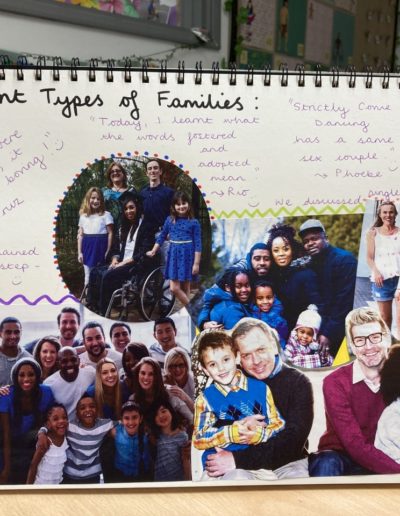 nt Types of Families :
"Today, I learnt what
the words fostered
and
adopted
mean"
→ Rio
"Strictly Come
Dancing
has a same
sex couple"
→ Phoebe
We discussed
single
it
boring!"
ained
step-